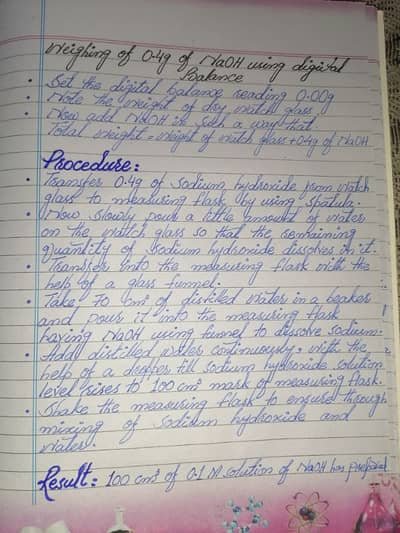 Weighing of 0.4g of NaOH using digital
Balance
• Set the digital balance reading 0.00g
• Note the weight of dry watch glass
• Now add NaOH in such a way that
Total weight = weight of watch glass + 0.4g of NaOH
Procedure:
• Transfer 0.4g of sodium hydroxide from watch
glass to measuring flask by using spatula.
• Now slowly pour a little amount of water
on the watch glass so that the remaining
quantity of sodium hydroxide dissolves in it.
• Transfer into the measuring flask with the
help of a glass funnel.
• Take 70 cm³ of distilled water in a beaker
and pour it into the measuring flask
having NaOH using funnel to dissolve sodium.
• Add distilled water continuously, with the
help of a dropper till sodium hydroxide solution
level rises to 100 cm³ mark of measuring flask.
• Shake the measuring flask to ensure through
mixing of sodium hydroxide and
water.
Result: 100 cm³ of 0.1 M solution of NaOH has prepared